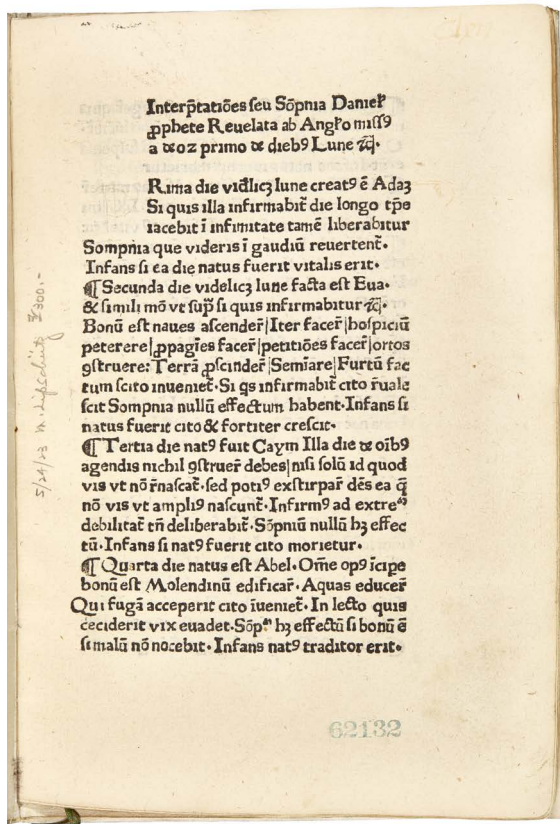 Interp̄tatiōes seu Sōpnia Danieł
ꝓphete Reuelata ab Angło missꝰ
a deo z primo de diebꝰ Lune ⁊c̄.
Rima die vidl̄icꝫ lune creatꝰ ē Adaꝫ
Si quis illa infirmabit̄ die longo tp̄e
iacebit ī infirmitate tamē liberabitur
Sompnia que videris ī gaudiū reuertent̄.
Infans si ea die natus fuerit vitalis erit.
¶ Secunda die videlicꝫ lune facta est Eua.
& simili mō vt sup̄ si quis infirmabitur ⁊c̄.
Bonū est naues ascender̄|Iter facer̄|hospiciū
peterere|ꝓpagīes facer̄|petitiões facer̄|ortos
ꝯstruere: Terrā ꝓscinder̄|Semīare|Furtū fac
tum scito inueniet̄. Si qs infirmabit̄ cito r̄uale
scit Sompnia nullū effectum habent. Infans si
natus fuerit cito & fortiter crescit.
¶ Tertia die natꝰ fuit Caym Illa die de oībꝰ
agendis nichil ꝯstruer̄ debes|nisi solū id quod
vis vt nō r̄nascat̄. sed potiꝰ exstirpar̄ dēs ea q̄
nō vis vt ampliꝰ nascunt̄. Infirmꝰ ad extre
debilitat̄ tn̄ deliberabit̄. Sōpniū nullū hꝫ effec
tū. Infans si natꝰ fuerit cito morietur.
¶ Quarta die natus est Abel. Om̄e opꝰ īcipe
bonū est Molendinū edificar̄. Aquas educer̄
Qui fugā acceperit cito īueniet̄. In lecto quis
ceciderit vix euadet. Sōp hꝫ effectū si bonū ē
si malū nō nocebit. Infans natꝰ traditor erit.
5/24/23 300.-
62132